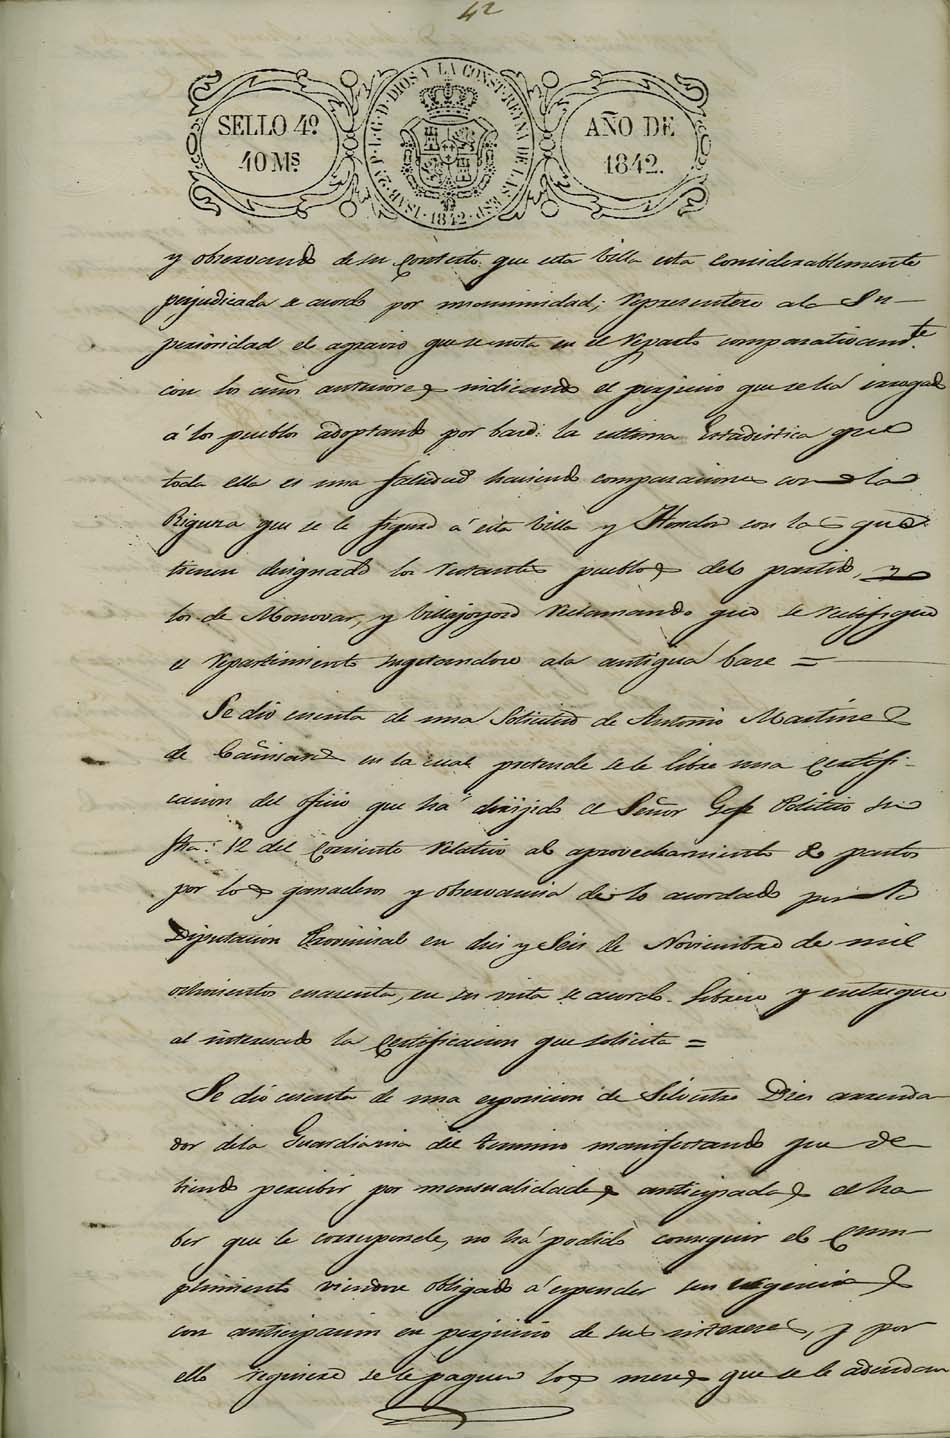 42
SELLO 4º.
40 Ms.
ISAB. 2ª P. L. G. D. DIOS Y LA CONST. REYNA DE LAS ESP. 1842
AÑO DE
1842.
y observando de su contesto que esta Villa esta considerablemente
perjudicada se acordo por unanimidad; representese ala Su-
perioridad el agravio que se nota en el reparto comparativamte.
con los años anteriores indicando el perjuicio que se ha irrogado
á los pueblos adoptando por base: la ultima Estadistica que
toda ella es una falsedad haciendo comparaciones con la
Riqueza que se le figura á esta Villa y Hondon con la que
tienen designado los restantes pueblos del partido, y
los de Monovar, y Villajoyosa reclamando que se rectifique
el repartimiento sugetandose ala antigua base =
Se dio cuenta de una Solicitud de Antonio Martinez
de Cañisares en la cual pretende se le libre una certifi-
cacion del oficio que há dirijido el Señor Gefe Politico su
fha: 12 del corriente relativo al aprovechamiento de pastos
por los ganaderos y observancia de lo acordado por la
Diputacion Provincial en dies y Seis de Noviembre de mil
ochocientos cuarenta, en su vista se acordo. Librese y entregue
al interesado la certificacion que solicita =
Se dio cuenta de una exposicion de Silvestre Dies arrenda-
dor dela Guardiania del termino manifestando que de-
biendo percibir por mensualidades anticipadas el ha-
ber que le corresponde, no há podido conseguir el cum-
plimiento viendose obligado á espender sus
con anticipacion en perjuicio de sus intereses, y por
ello requiere se le paguen los meses que se le adeudan